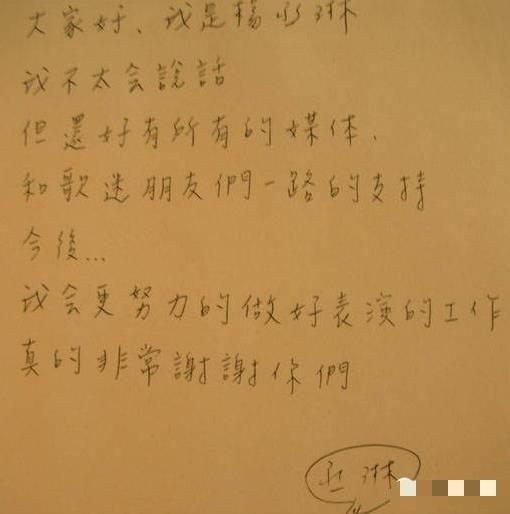 大家好、我是楊丞琳
我不太会說話
但還好有所有的媒体、
和歌迷朋友們一路的支持
今後...
我会更努力的做好表演的工作
真的非常謝謝你們
丞琳